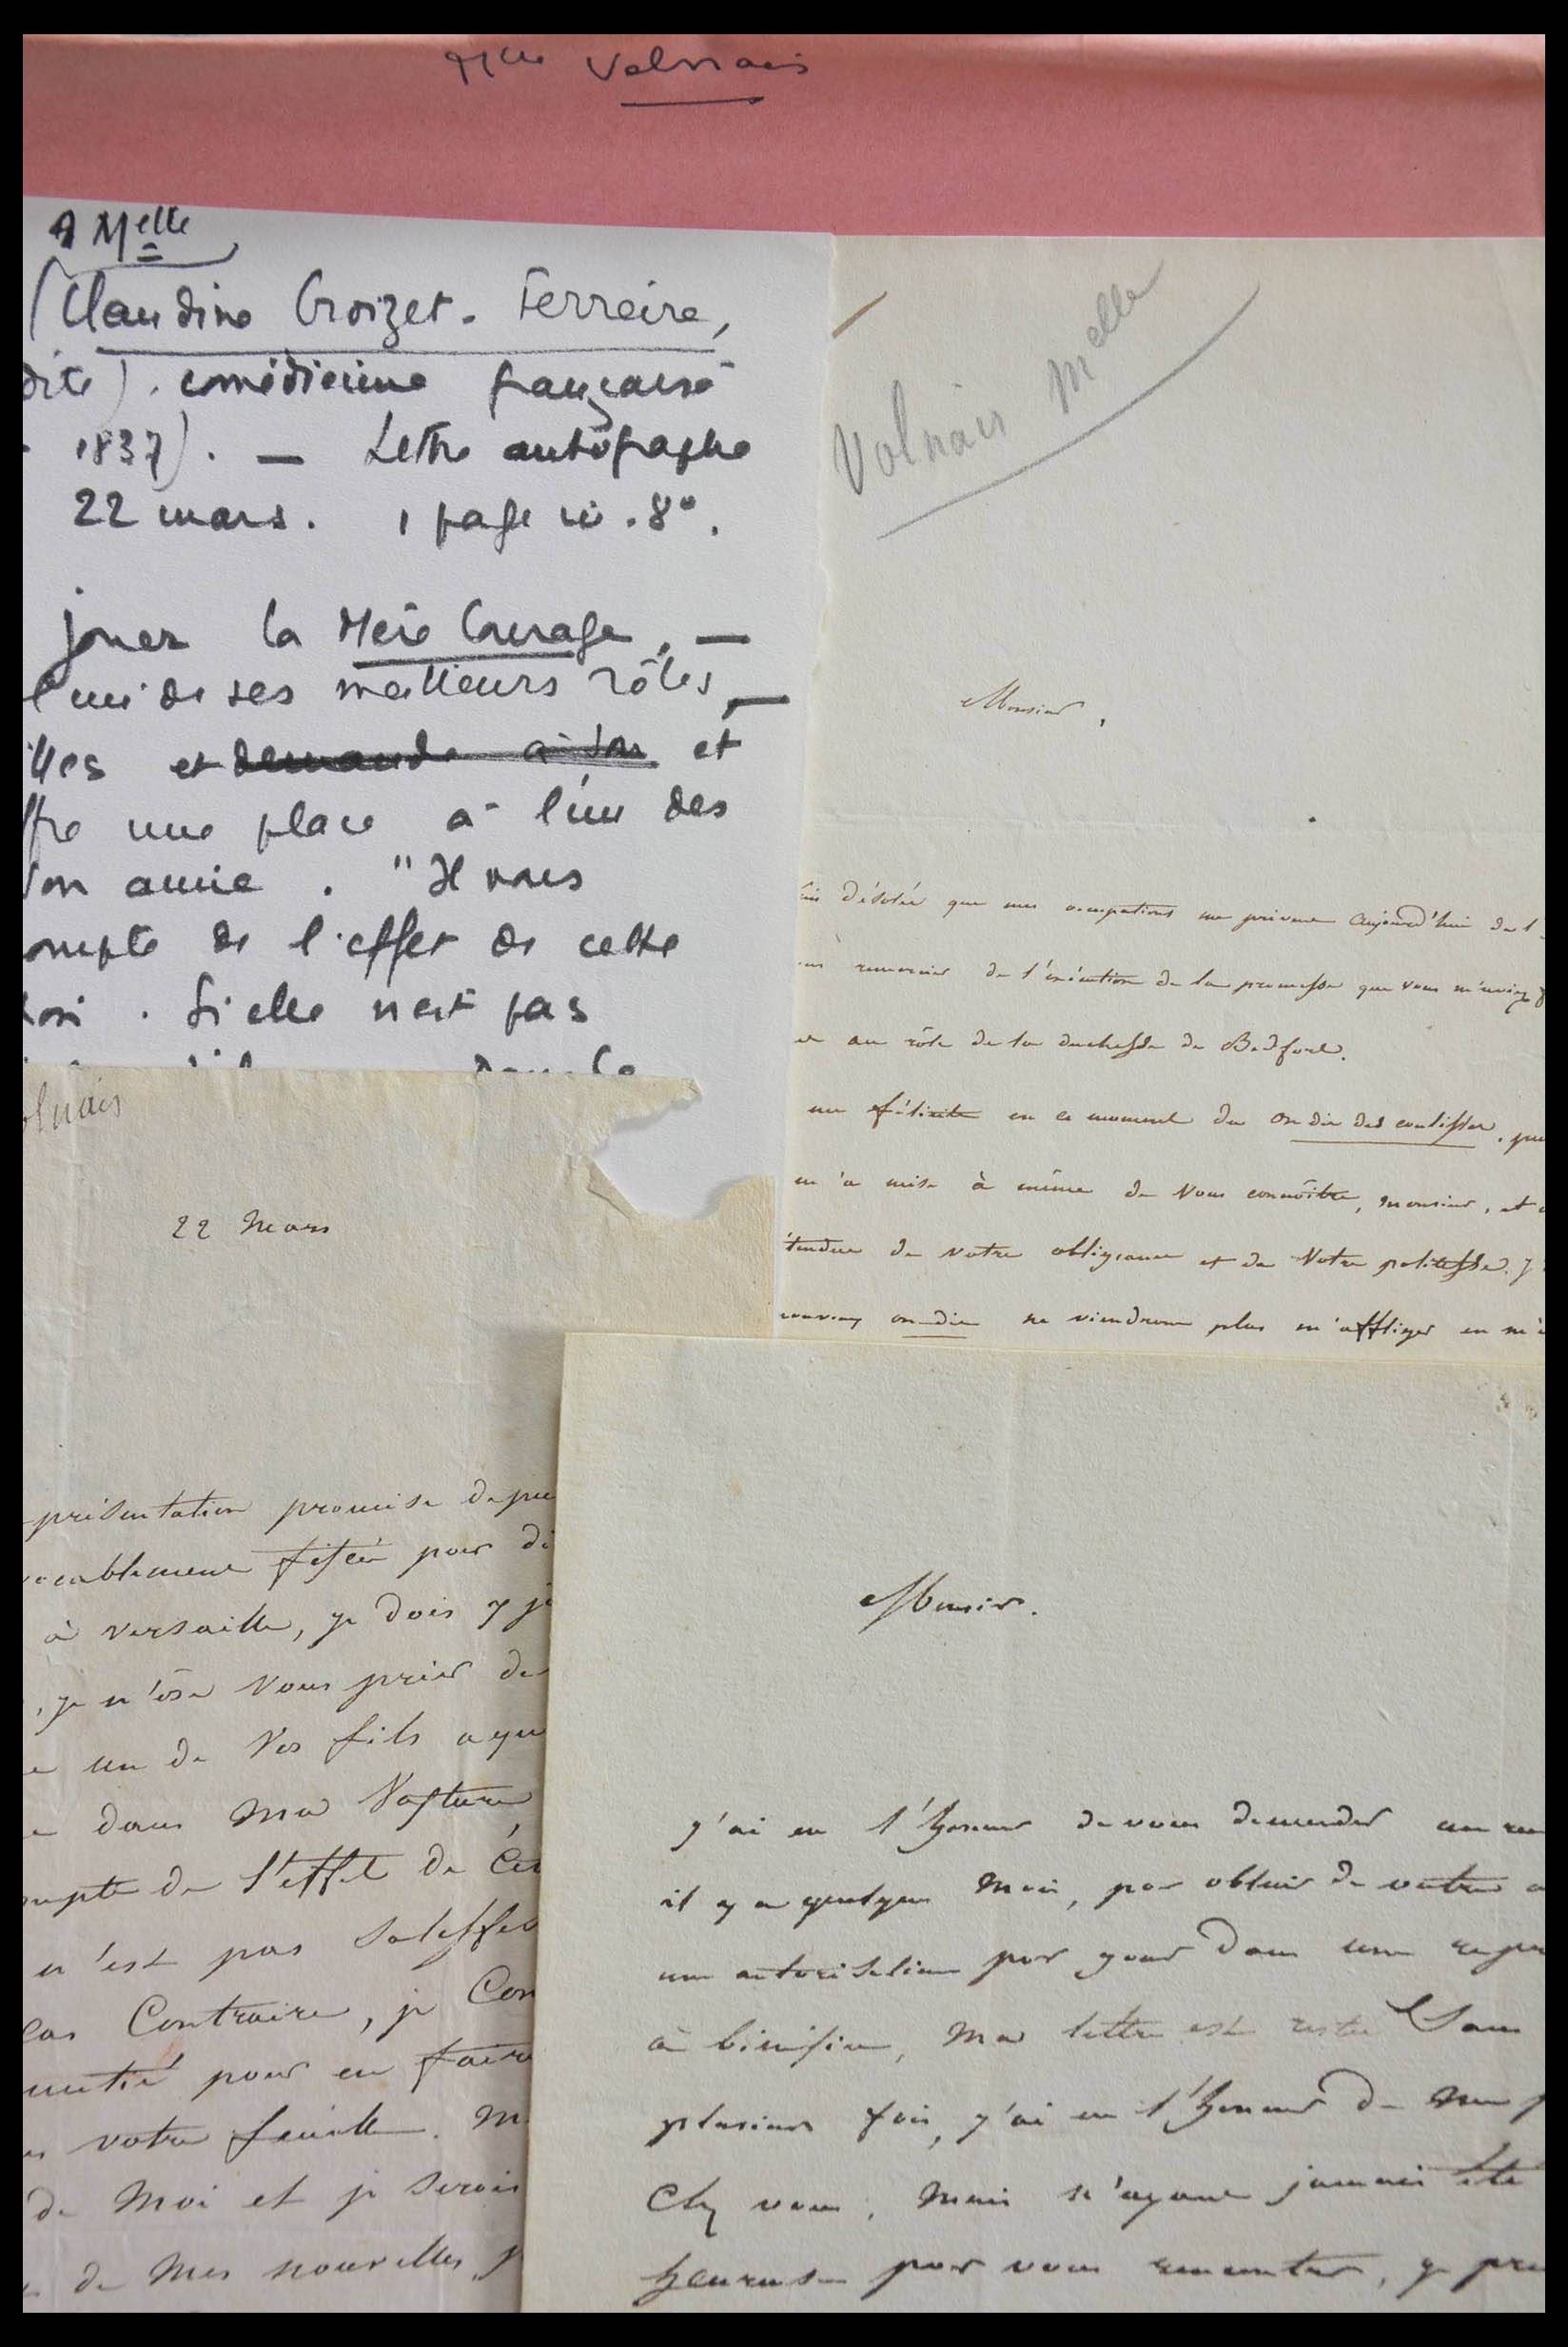 Mlle Volnais
A Melle
(Claudine Croizet-Ferreire,
dite). comédienne française
- 1837). — Lettre autographe
22 mars. 1 page in-8°.
jouer la Mère Courage, —
l'un de ses meilleurs rôles, —
illes et demande à son et
ffre une place à l'un des
son amie. "Il vous
ompte de l'effet de cette
. Si elle n'est pas
Volnais Melle
Monsieur,
désolée que mes occupations me privent aujourd'hui de l'
remercier de l'exécution de la promesse que vous m'aviez
au rôle de la duchesse de Bedford.
me félicite en ce moment du on dit des coulisses,
m'a mise à même de vous connoître, monsieur, et
tendue de votre obligeance et de votre politesse. J'
on-dit ne viendront plus m'affliger en m'
olnais
22 Mars
présentation promise depu
ocablement fixée pour di
à versaille, je dois y j
, je n'ôse vous prier de
un de vos fils
dans ma voyture,
ompte de l'effet de cet
n'est pas
cas Contraire, je Con
pour en faire
votre feuille. M
de Moi et je serois
de Mes nouvelles, j
Monsieur.
j'ai eu l'honneur de vous demander un
il y a quelques Mois, pour obtenir de votre
une autorisation pour jouer dans une repr
à bénéfice, Ma lettre est restée Sans
plusieurs fois, j'ai eu l'honneur de me p
Chez vous, Mais n'ayant jamais été
heureuse pour vous rencontrer, je pre